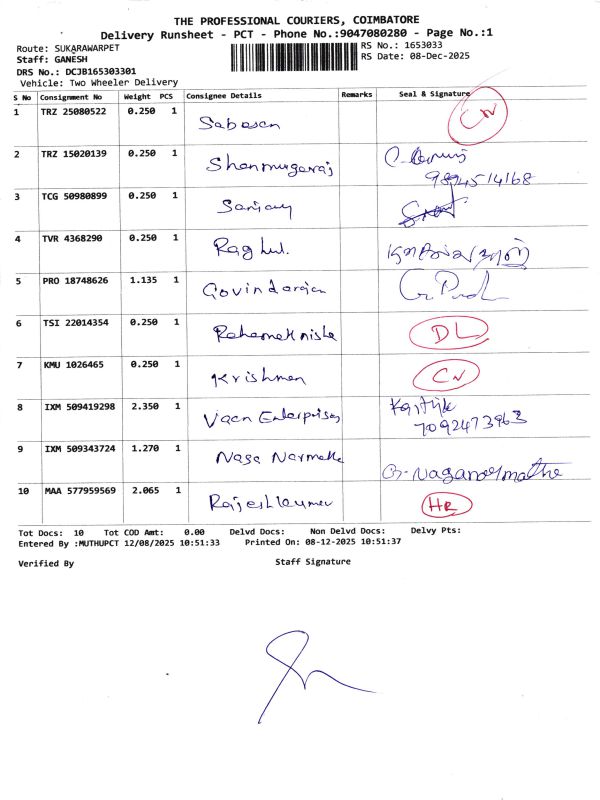 THE PROFESSIONAL COURIERS, COIMBATORE
Delivery Runsheet - PCT - Phone No.:9047080280 - Page No.:1
Route: SUKARAWARPET RS No.: 1653033
Staff: GANESH RS Date: 08-Dec-2025
DRS No.: DCJB165303301
Vehicle: Two Wheeler Delivery
S No Consignment No Weight PCS Consignee Details Remarks Seal & Signature
1 TRZ 25080522 0.250 1 Sabesan CN
2 TRZ 15020139 0.250 1 Shanmugaraj
9894514168
3 TCG 50980899 0.250 1 Sanjay
4 TVR 4368290 0.250 1 Raghul.
5 PRO 18748626 1.135 1 Govindarajan
6 TSI 22014354 0.250 1 Rahamathnisha DL
7 KMU 1026465 0.250 1 Krishnan CN
8 IXM 509419298 2.350 1 Vaan Enterprises Karthik
7092473963
9 IXM 509343724 1.270 1 Naga Narmatha G. Naganarmatha
10 MAA 577959569 2.065 1 Rajeshkumar HR
Tot Docs: 10 Tot COD Amt: 0.00 Delvd Docs: Non Delvd Docs: Delvy Pts:
Entered By :MUTHUPCT 12/08/2025 10:51:33 Printed On: 08-12-2025 10:51:37
Verified By Staff Signature